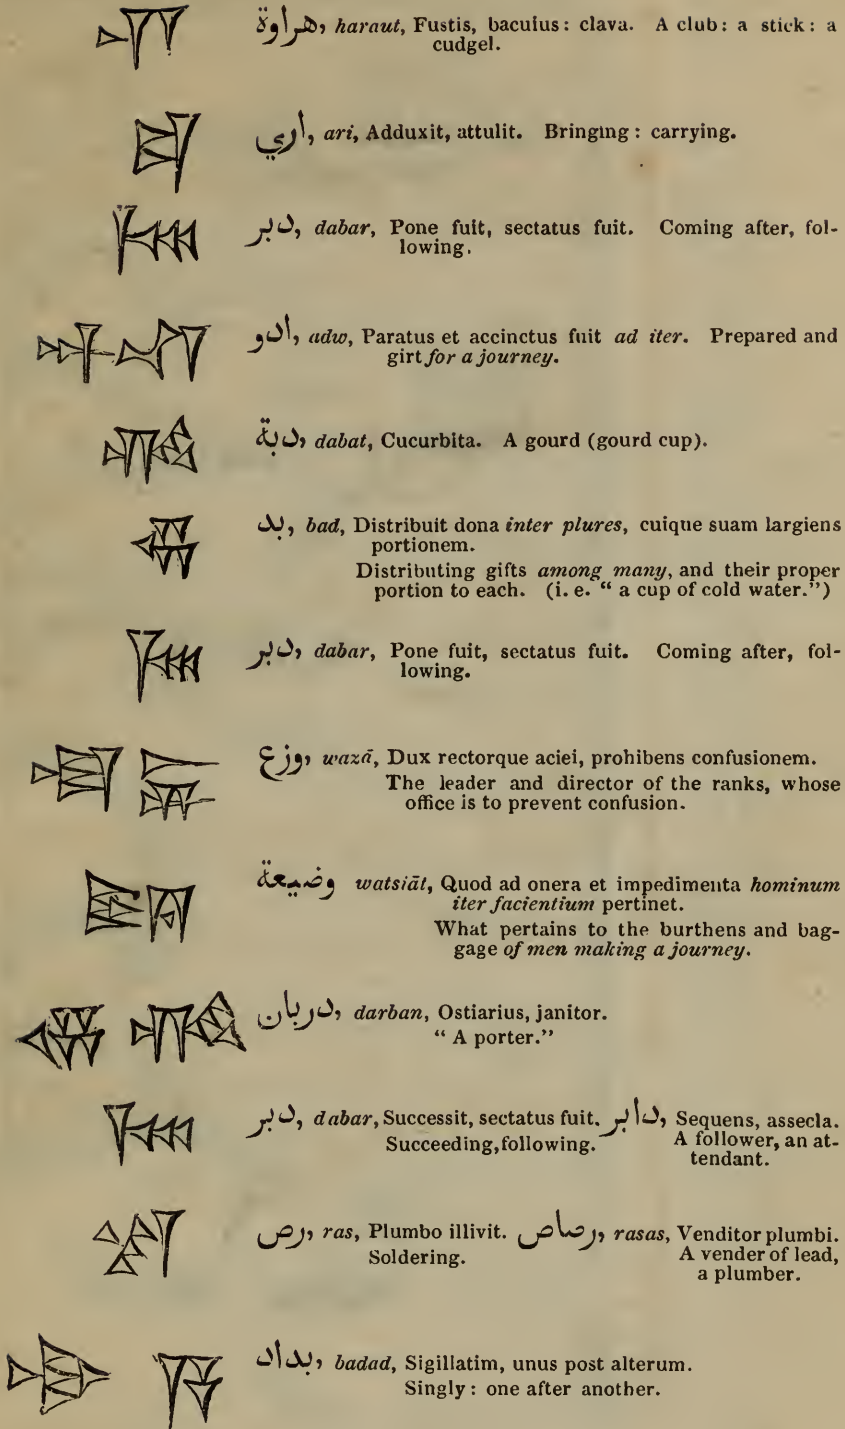 هراوة, haraut, Fustis, baculus: clava. A club: a stick: a
cudgel.
اري, ari, Adduxit, attulit. Bringing: carrying.
دبر, dabar, Pone fuit, sectatus fuit. Coming after, fol-
lowing.
ادو, adw, Paratus et accinctus fuit ad iter. Prepared and
girt for a journey.
دبة, dabat, Cucurbita. A gourd (gourd cup).
بد, bad, Distribuit dona inter plures, cuique suam largiens
portionem.
Distributing gifts among many, and their proper
portion to each. (i. e. “ a cup of cold water.”)
دبر, dabar, Pone fuit, sectatus fuit. Coming after, fol-
lowing.
وزع, wazā, Dux rectorque aciei, prohibens confusionem.
The leader and director of the ranks, whose
office is to prevent confusion.
وضيعة watsiāt, Quod ad onera et impedimenta hominum
iter facientium pertinet.
What pertains to the burthens and bag-
gage of men making a journey.
دربان, darban, Ostiarius, janitor.
“ A porter.”
دبر, dabar, Successit, sectatus fuit. دابر, Sequens, assecla.
Succeeding, following. A follower, an at-
tendant.
رص, ras, Plumbo illivit. رصاص, rasas, Venditor plumbi.
Soldering. A vender of lead,
a plumber.
بداد, badad, Sigillatim, unus post alterum.
Singly: one after another.